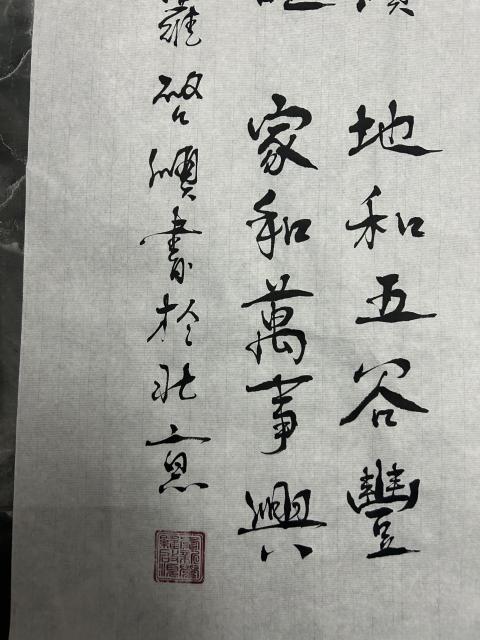 地和五谷豐
家和萬事興
羅啓順書於北京